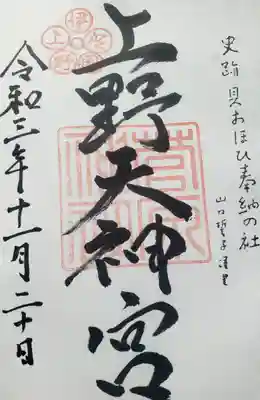 史跡 貝おほひ奉納の社
山口誓子
上野天神宮
令和三年十一月二十日